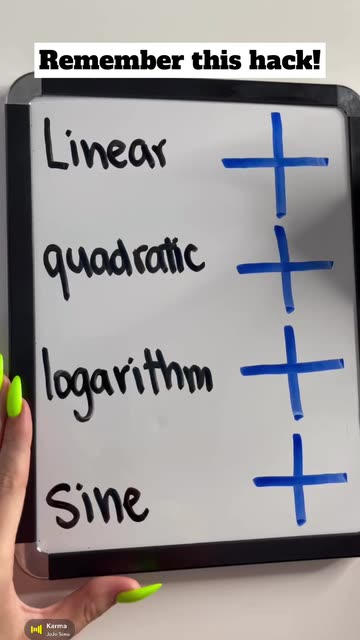 Remember this hack!
Linear
quadratic
logarithm
sine
Karma
JoJo Siwa